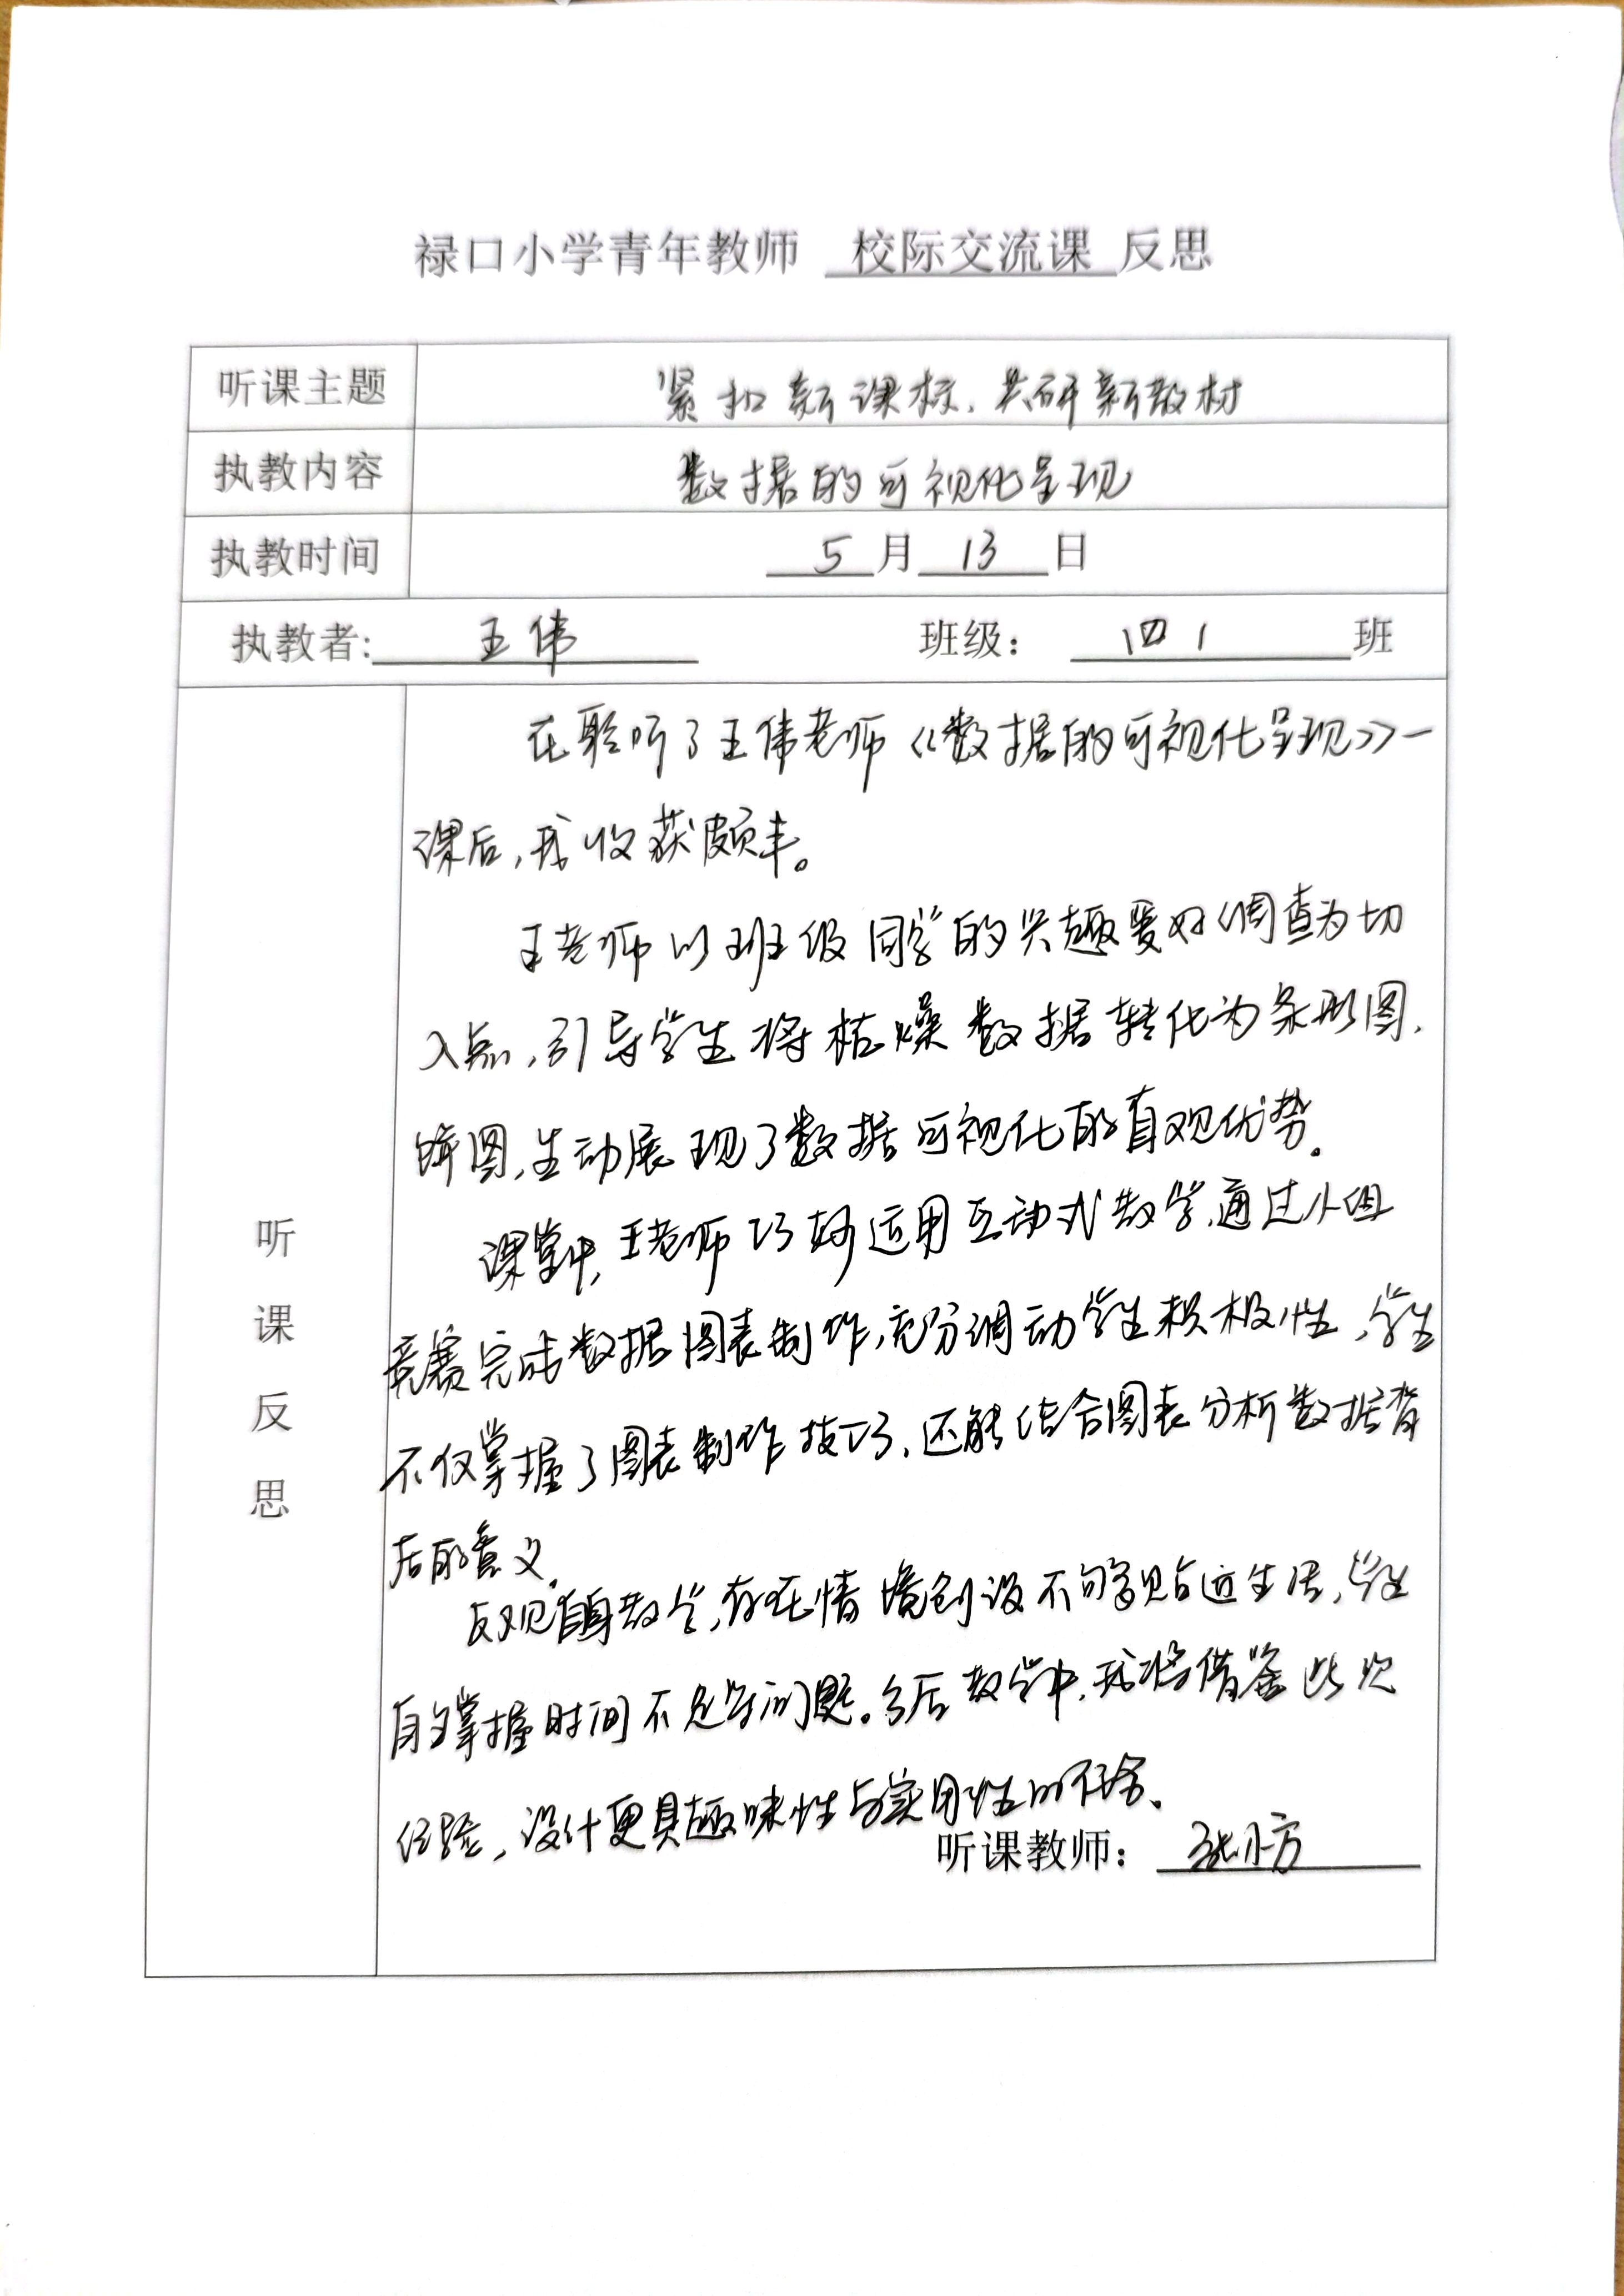 禄口小学青年教师 校际交流课 反思
听课主题 紧扣新课标、共研新教材
执教内容 数据的可视化呈现
执教时间 5月13日
执教者: 王伟 班级: 四1班
听课反思
在聆听了王伟老师《数据的可视化呈现》一
课后,我收获颇丰。
王老师以班级同学的兴趣爱好调查为切
入点,引导学生将枯燥数据转化为条形图、
饼图,生动展现了数据可视化的直观优势。
课堂中,王老师巧妙运用互动式教学,通过小组
竞赛完成数据图表制作,充分调动学生积极性,学生
不仅掌握了图表制作技巧,还能结合图表分析数据背
后的意义。
反观自身教学,存在情境创设不够贴近生活,学生
自主掌握时间不足等问题。今后教学中,我将借鉴此次
经验,设计更具趣味性与实用性的任务。
听课教师: 张小方